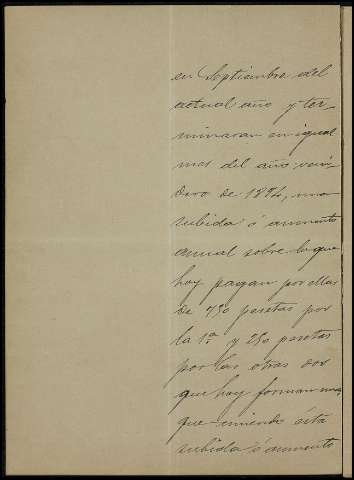 en Septiembre del
actual año y ter-
minaran en igual
mes del año veni-
dero de 1894, una
subida ó aumento
anual sobre lo que
hoy pagan por ellas
de 750 pesetas por
la 1ª y 250 pesetas
por las otras dos
que hoy forman una,
que uniendo esta
subida ó aumento